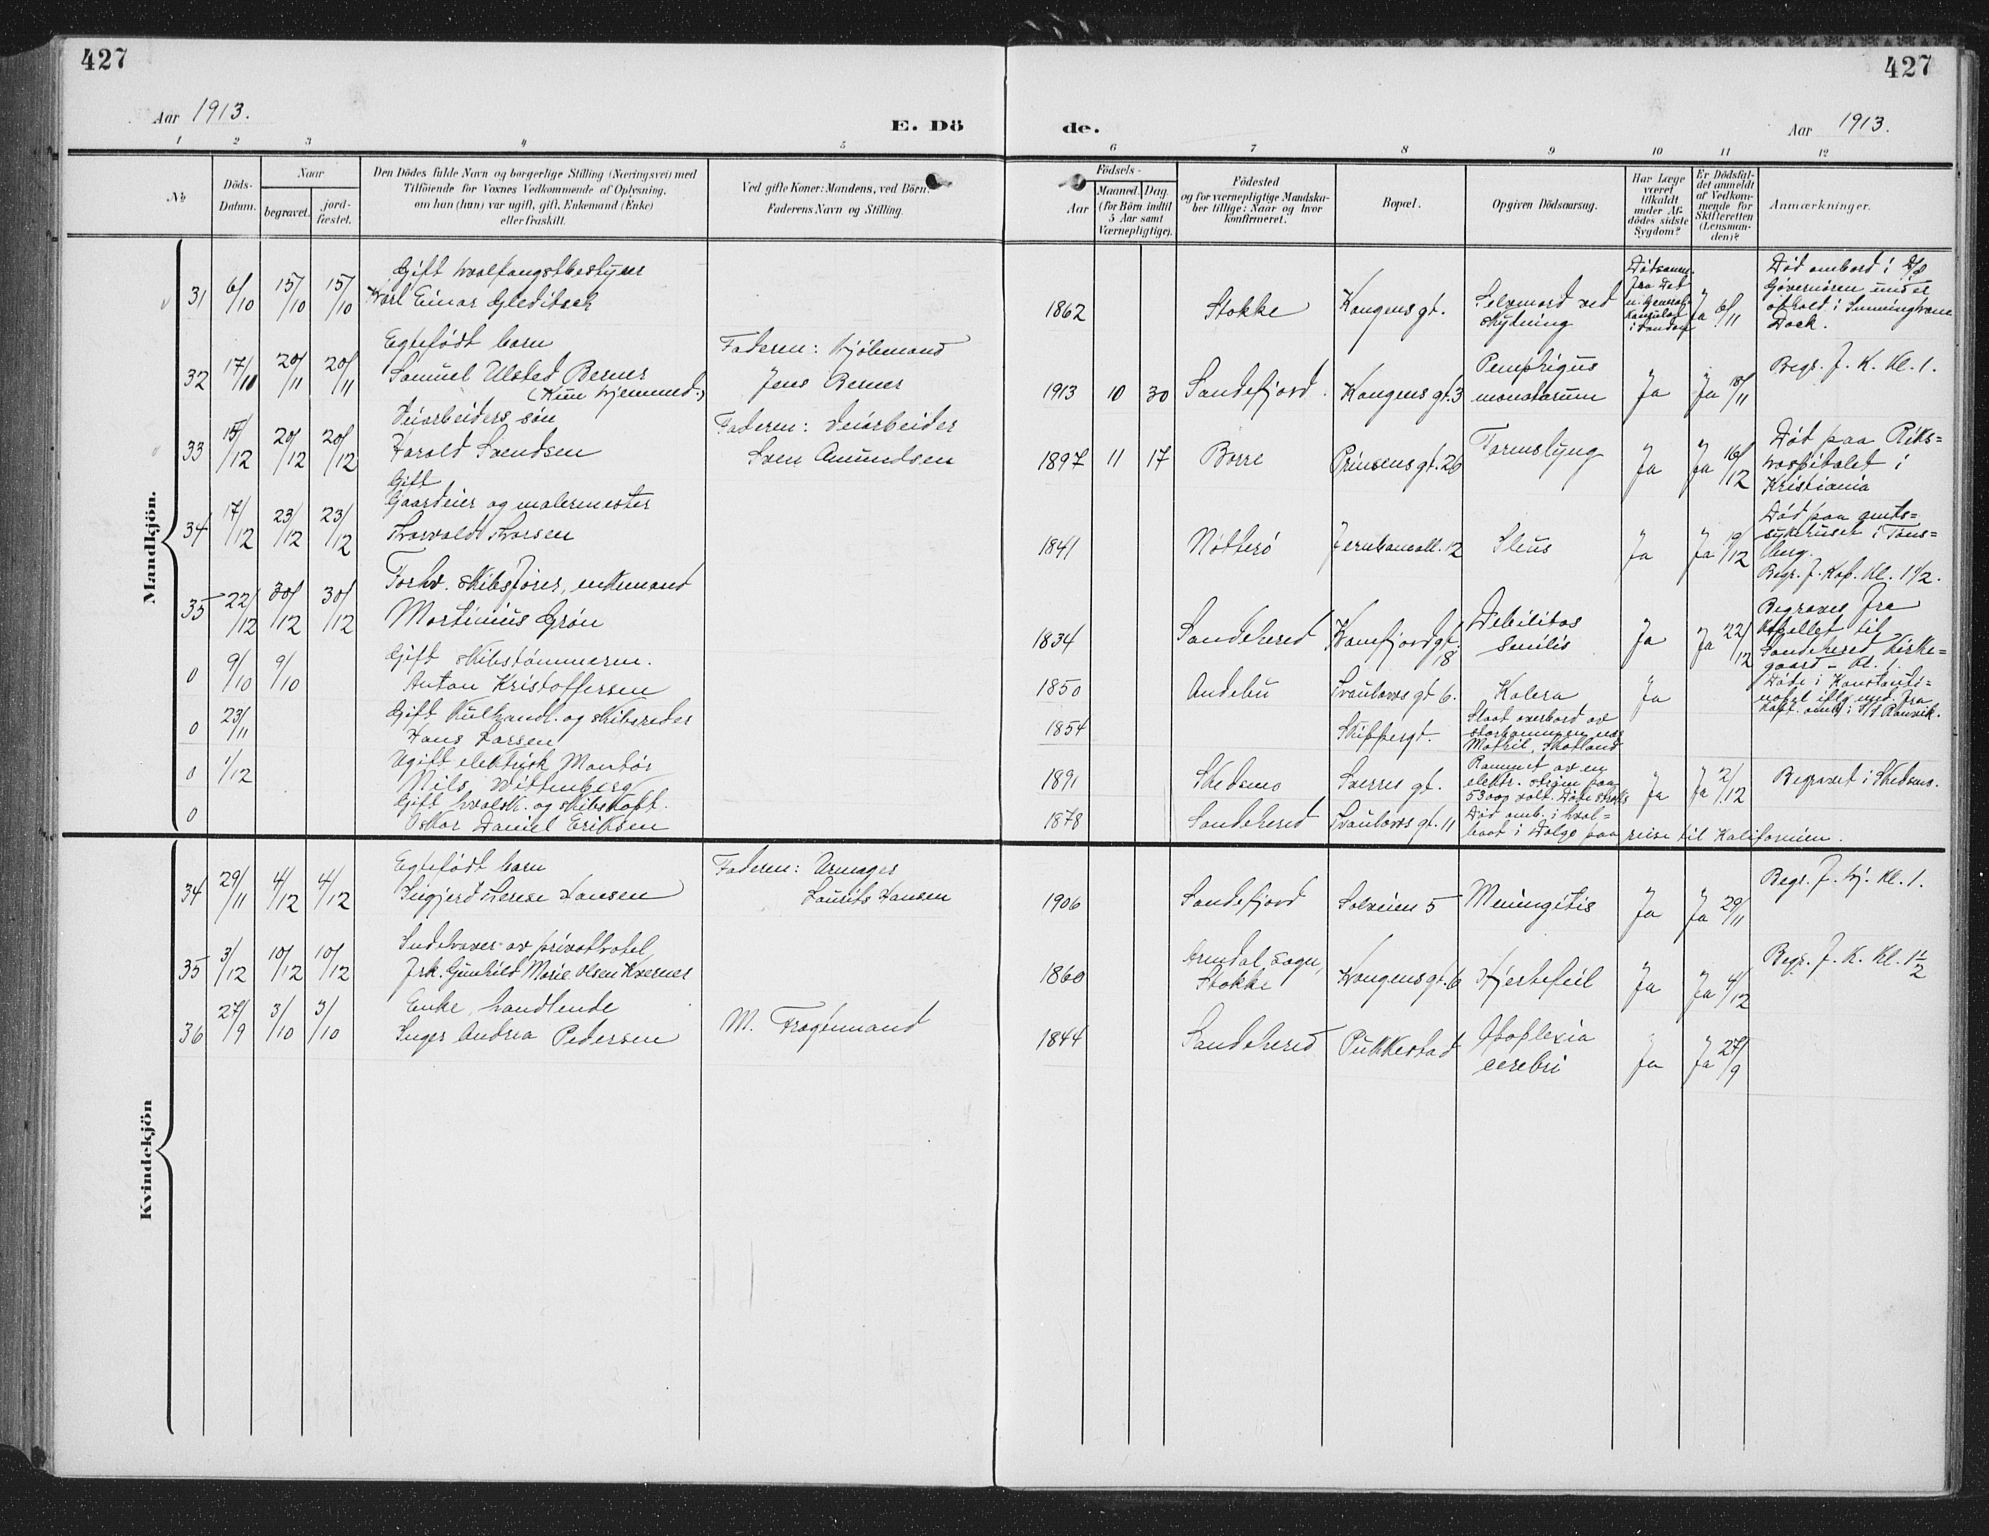 427
427
Aar 1913.
E. Dö
de.
Aar 1913.
1 2 3 4 5 6 7 8 9 10 11 12
No
Döds-
Datum.
Naar
begravet.
jord-
fæstet.
Den Dödes fulde Navn og borgerlige Stilling (Næringsvei) med
Tilföiende for Voxnes Vedkommende af Oplysning,
om hun (han) var ugift, gift, Enkemand (Enke)
eller fraskilt.
Ved gifte Koner: Mandens, ved Börn:
Faderens Navn og Stilling.
Födsels-
Aar
Maaned.
Dag.
(for Börn indtil
5 Aar samt
Værnepligtige).
Födested
og for værnepligtige Mandska-
ber tillige: Naar og hvor
konfirmeret.
Bopæl.
Opgiven Dödsaarsag.
Har Læge
været
tilkaldt
under Af-
dödes sidste
Sygdom?
Er Dödsfal-
det anmeldt
af Vedkom-
mende for
Skifteretten
(Lensman-
den)?
Anmærkninger.
Mandkjön.
31 6/10 15/10 15/10 Gift hvalfangstbestyrer
Karl Einar Gleditsch
1862 Stokke Kongens gt. Selvmord ved
skytning
Ja 6/11
Död ombord i
Guvernören under
ophold i
Dock.
32 17/11 20/11 20/11 Egtefödt barn
Samuel Ulsted Berner
(Kun hjemmed.)
Faderen: Kjöbmand
Jens Berner
1913 10 30 Sandefjord. Kongens gt. 3 Pemphigus
Ja Ja 18/11 Begr. f. K. Kl. 1.
33 15/12 20/12 20/12 Veiarbeiders sön
Harald Svendsen
Faderen: Veiarbeider
Sven Amundsen
1897 11 17 Borre Prinsens gt. 26 Tarmslyng Ja Ja 16/12
Död paa Riks-
hospitalet i
Kristiania
34 17/12 23/12 23/12 Gift
Gaardeier og malermester
Thorvald Thorsen
1841 Nötterö Jernbaneall. 12 Ileus Ja Ja 19/12
Död paa amts-
sykehuset i Töns-
berg.
Begr. f. Kap. Kl. 1 1/2.
35 22/12 30/12 30/12 Forhv. skibsförer, enkemand
Martinius Grön
1834 Sandeherred Kamfjordgt.
18
Debilitas
senilis
Ja Ja 22/12
Begraves fra
Kapellet til
Sandeherred Kirke-
gaard - Kl. 1.
0 9/10 9/10 Gift skibstömmerm.
Anton Kristoffersen
1850 Andebu gt. 6. Kolera Ja
Döde i Konstanti-
nopel
0 23/11 Gift Kulhandl. og skibsreder
Hans Larsen
1854 Skippergt. Slaat overbord av
Skotland
0 1/12 Ugift elektrisk Montör
Nils Wittenberg
1891 Skedsmo Sverres gt. Rammet av en
elektr. paa
5300 volt. Döde straks
Ja Ja 2/12 Begravet i Skedsmo.
0 Gift hvalsk. og skibskapt.
Oskar Daniel Eriksen
1878 Sandeherred gt. 11 Död omb. i hval-
baat i paa reise til Kalifornien.
Kvindekjön
34 29/11 4/12 4/12 Egtefödt barn
Sigjerd Therese Hansen
Faderen: Urmager
Laurits Hansen
1906 Sandefjord Solveien 5 Meningitis Ja Ja 29/11 Begr. f. Hj. Kl. 1.
35 3/12 10/12 10/12 Indehaver av privathotel
Frk. Gunhild Marie Olsen Kverner
1860 Arndal sogn,
Stokke
Kongens gt. 6 Hjertefeil Ja Ja 4/12 Begr. f. K. Kl. 1 1/2
36 27/9 3/10 3/10 Enke, handlende
Inger Andrea Pedersen
M. Fragönmand
1844 Sandeherred Pukkestad Apoplexia
cerebri
Ja Ja 27/9